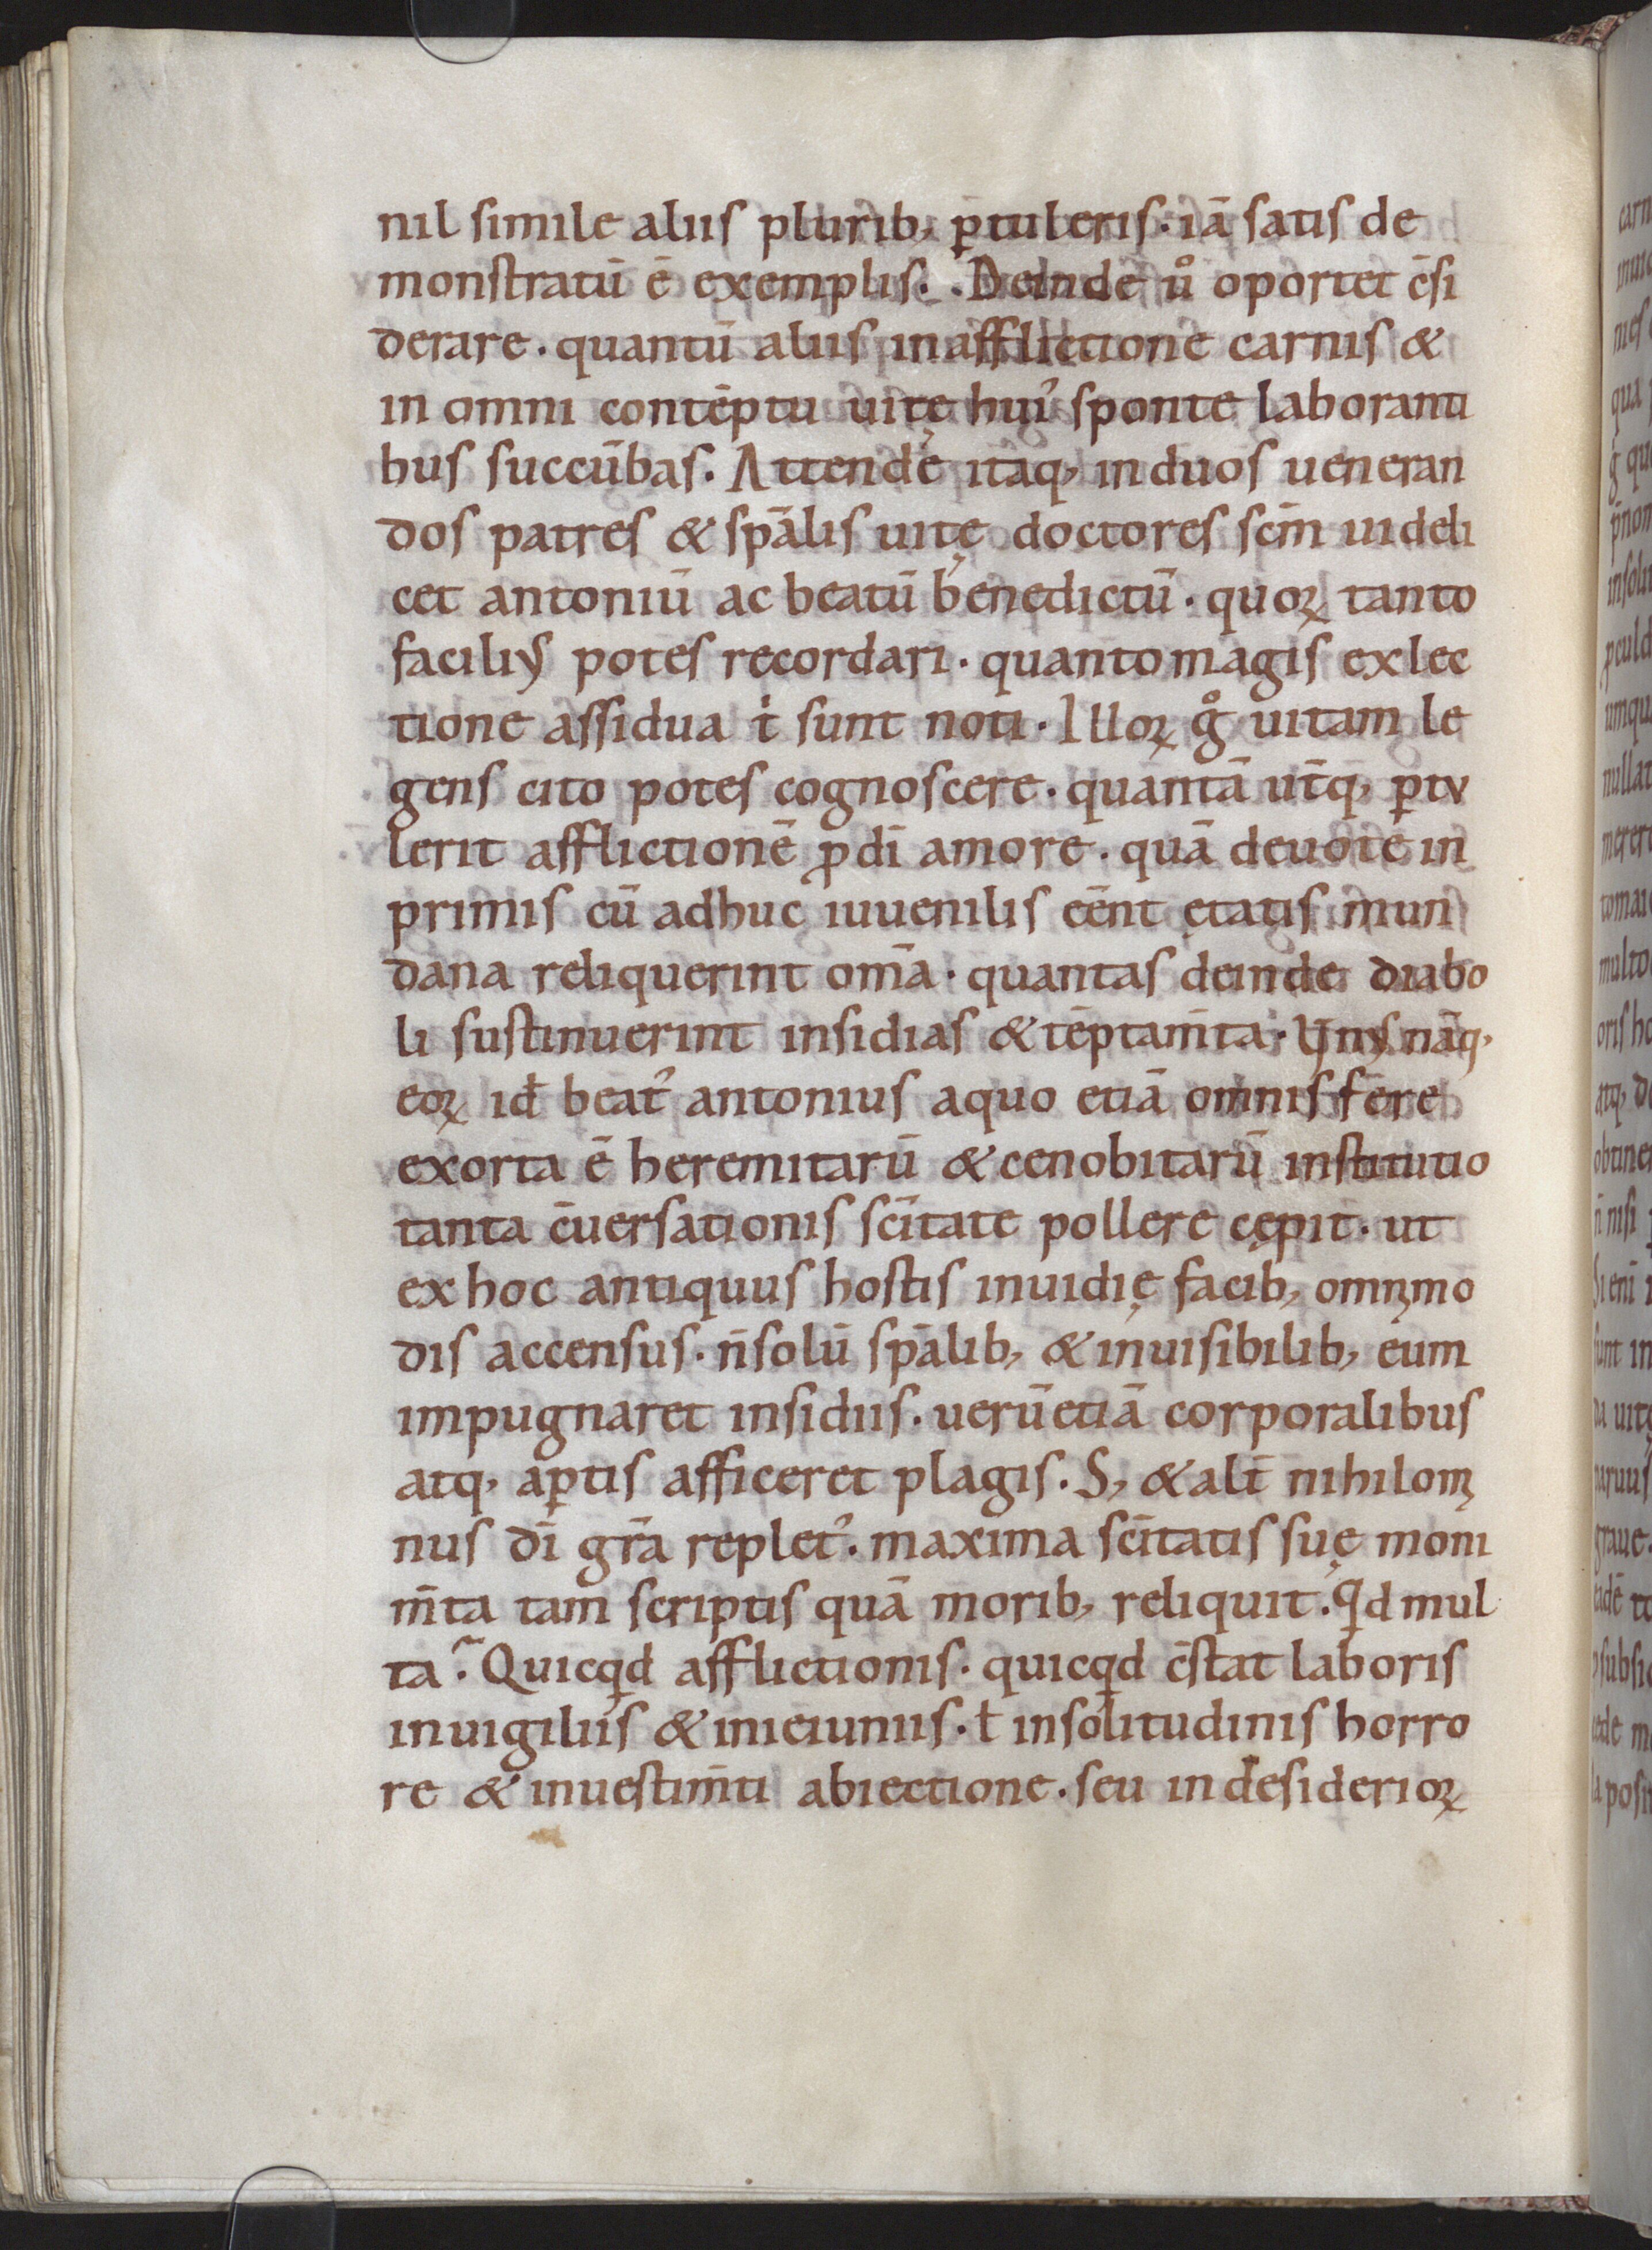 nil simile aliis plurib; ꝑtuleris. iā satis de
monstratū ē exemplis. Deinde ů oportet c̄si
derare. quantū aliis in afflictione carnis &
in omni contēptu uitę hui᾿ sponte laboranti
bus succūbas. Attende itaq; in duos ueneran
dos patres & sp̄alis uitę doctores scm̄ uideli
cet antoniū ac beatū benedictū. quoꝝ tanto
facilius potes recordari. quanto magis ex lec
tione assidua t sunt noti. Illoꝝ g̊ uitam le
gens cito potes cognoscere. quantā ut̄q; ꝑtu
lerit afflictionē ꝓ dī amore. quā deuote in
primis cū adhuc iuuenilis eēnt ętatis mun
dana reliquerint om̄a. quantas deinde diabo
li sustinuerint insidias & tēptam̄ta. Unus nāq;
eoꝝ id̄ beat᾿ antonius a quo etiā omnis fere
exorta ē heremitarū & cenobitarū institutio
tanta c̄uersationis sc̄itate pollere cępit. ut
ex hoc antiquus hostis inuidię facib; omnimo
dis accensus. n̄ solū sp̄alib; & inuisibilib; eum
impugnaret insidiis. uerū etiā corporalibus
atq; aꝑtis afficeret plagis. S; & alt̄ nihilomi
nus dī gr̄a replet᾿. maxima sc̄itatis suę moni
m̄ta tam scriptis quā morib; reliquit. Qd mul
ta? Quicqd afflictionis. quicqd c̄stat laboris
in uigiliis & in ieiuniis. ł in solitudinis horro
re & in uestim̄ti abiectione. seu in desiderioꝝ